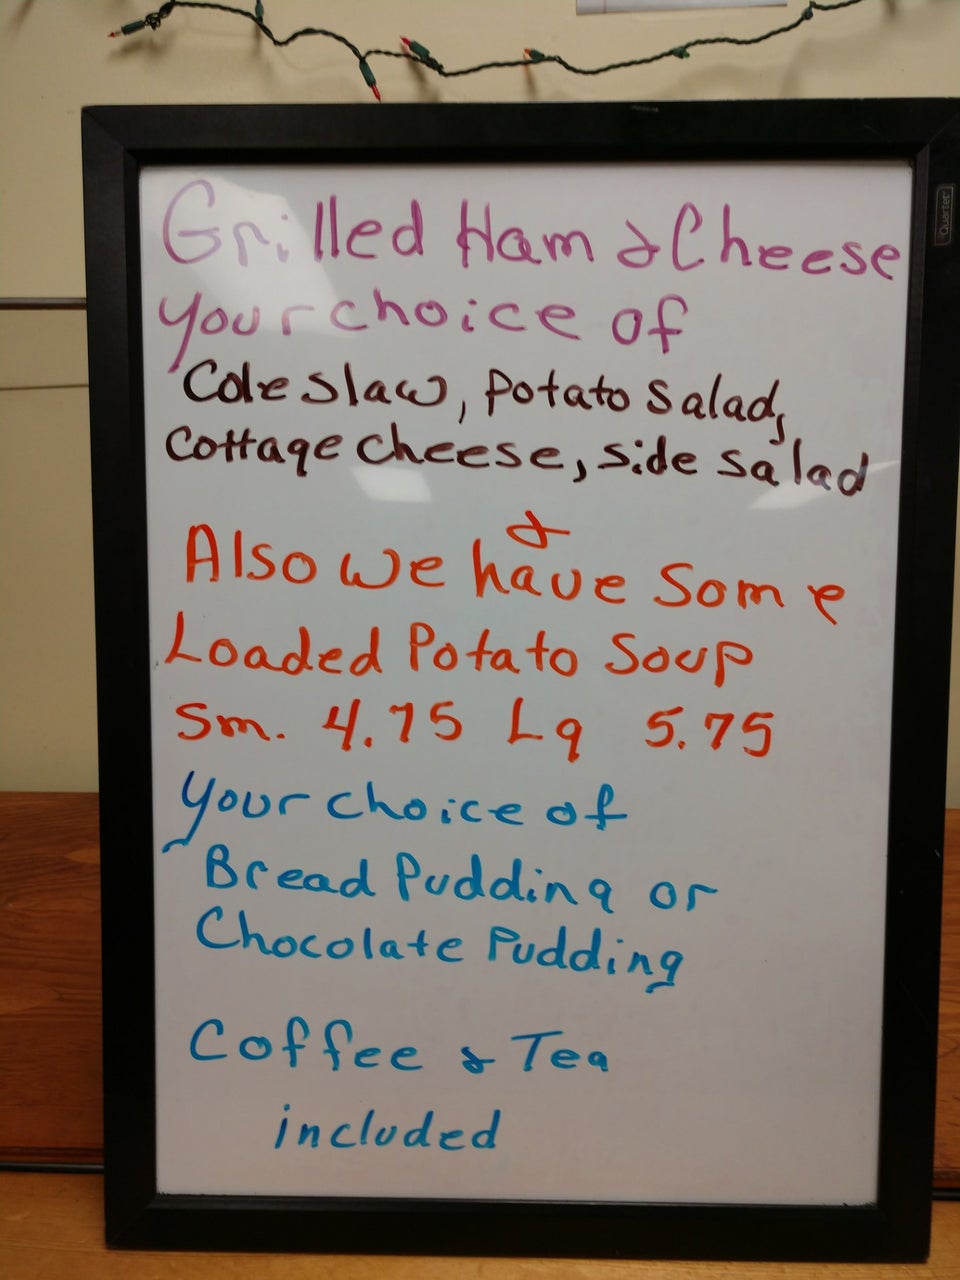 Grilled Ham & Cheese
your choice of
Cole slaw, Potato Salad,
Cottage cheese, side salad
&
Also we have Some
Loaded Potato Soup
Sm. 4.75 Lg 5.75
your choice of
Bread Pudding or
Chocolate Pudding
Coffee & Tea
included
Quartet